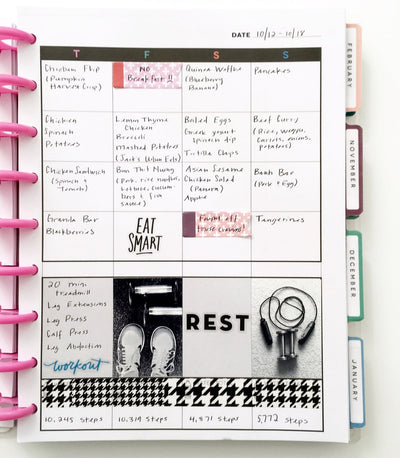 DATE 10/12 - 10/18
T F S S
Chobani Flip
(Pumpkin
Harvest Crisp)
No
Breakfast!!
Quinoa Waffle
(Blueberry
Banana)
Pancakes
Chicken
Spinach
Potatoes
Lemon Thyme
Chicken
Broccoli
Mashed Potatoes
(Jack's Urban Eats)
Boiled Eggs
Greek yogurt
Spinach dip
Tortilla Chips
Beef Curry
(Rice, wagyu,
carrots, onions,
potatoes)
Chicken Sandwich
(Spinach +
Tomato)
Bun Thit Nuong
(Pork, rice noodles,
lettuce, cucum
bers + fish
sauce)
Asian Sesame
Chicken Salad
(Panera)
Apple
Banh Bao
(Pork + Egg)
Granola Bar
Blackberries
EAT
SMART
Fought off
those cravings!
Tangerines
20 mini
treadmill
Leg Extensions
Leg Press
Calf Press
Leg Abduction
workout
REST
10,245 Steps
10,319 Steps
4,871 Steps
5,772 Steps
FEBRUARY
NOVEMBER
DECEMBER
JANUARY